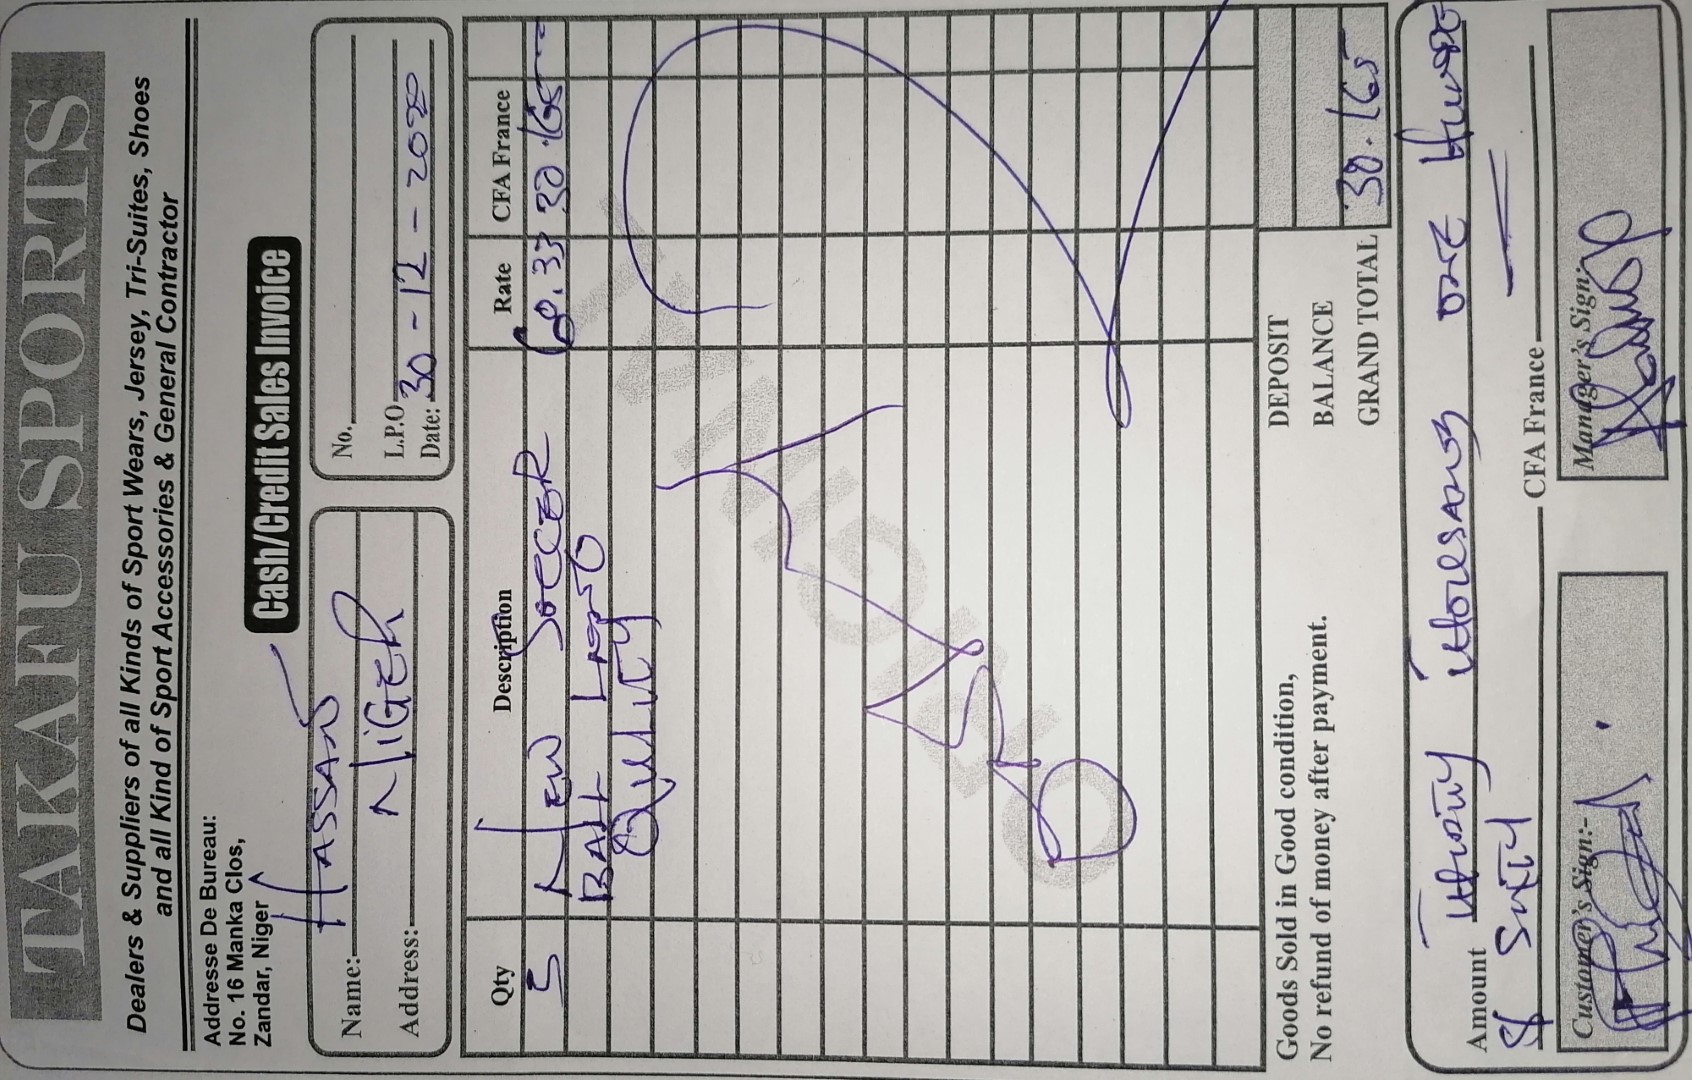 TAKAFU SPORTS
Dealers & Suppliers of all Kinds of Sport Wears, Jersey, Tri-Suites, Shoes
and all Kind of Sport Accessories & General Contractor
Addresse De Bureau:
No. 16 Manka Clos,
Zandar, Niger
Cash/Credit Sales Invoice
Name: HASSAN
Address: NIGER
No.
L.P.O
Date: 30-12-2020
Qty Description Rate CFA France
5 NEW SOCCER 30.165
BALL
QUALITY
ORIGINAL
PAID
Goods Sold in Good condition,
No refund of money after payment.
DEPOSIT
BALANCE
GRAND TOTAL 30.165
Amount THIRTY ONE
& SIXTY CFA France
Customer's Sign:-
Manager's Sign: